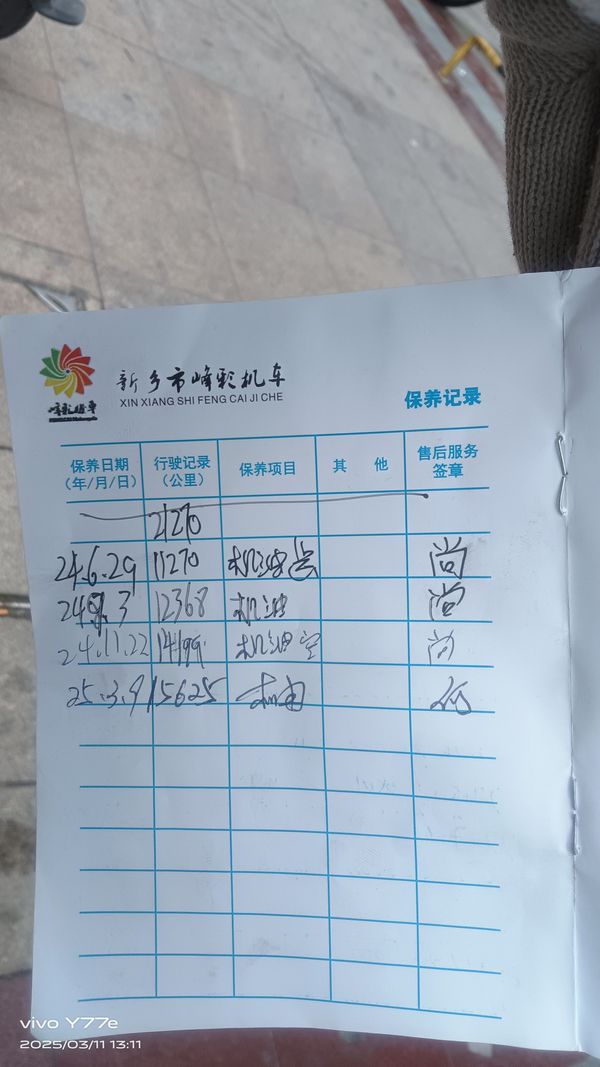 新乡市峰彩机车
XIN XIANG SHI FENG CAI JI CHE
保养记录
保养日期（年/月/日） 行驶记录（公里） 保养项目 其 他 售后服务签章
21270
24.6.29 11270 机油 尚
24.9.3 12368 机油 尚
24.11.22 14199 机油空 尚
25.3.9 15625 机油
vivo Y77e
2025/03/11 13:11